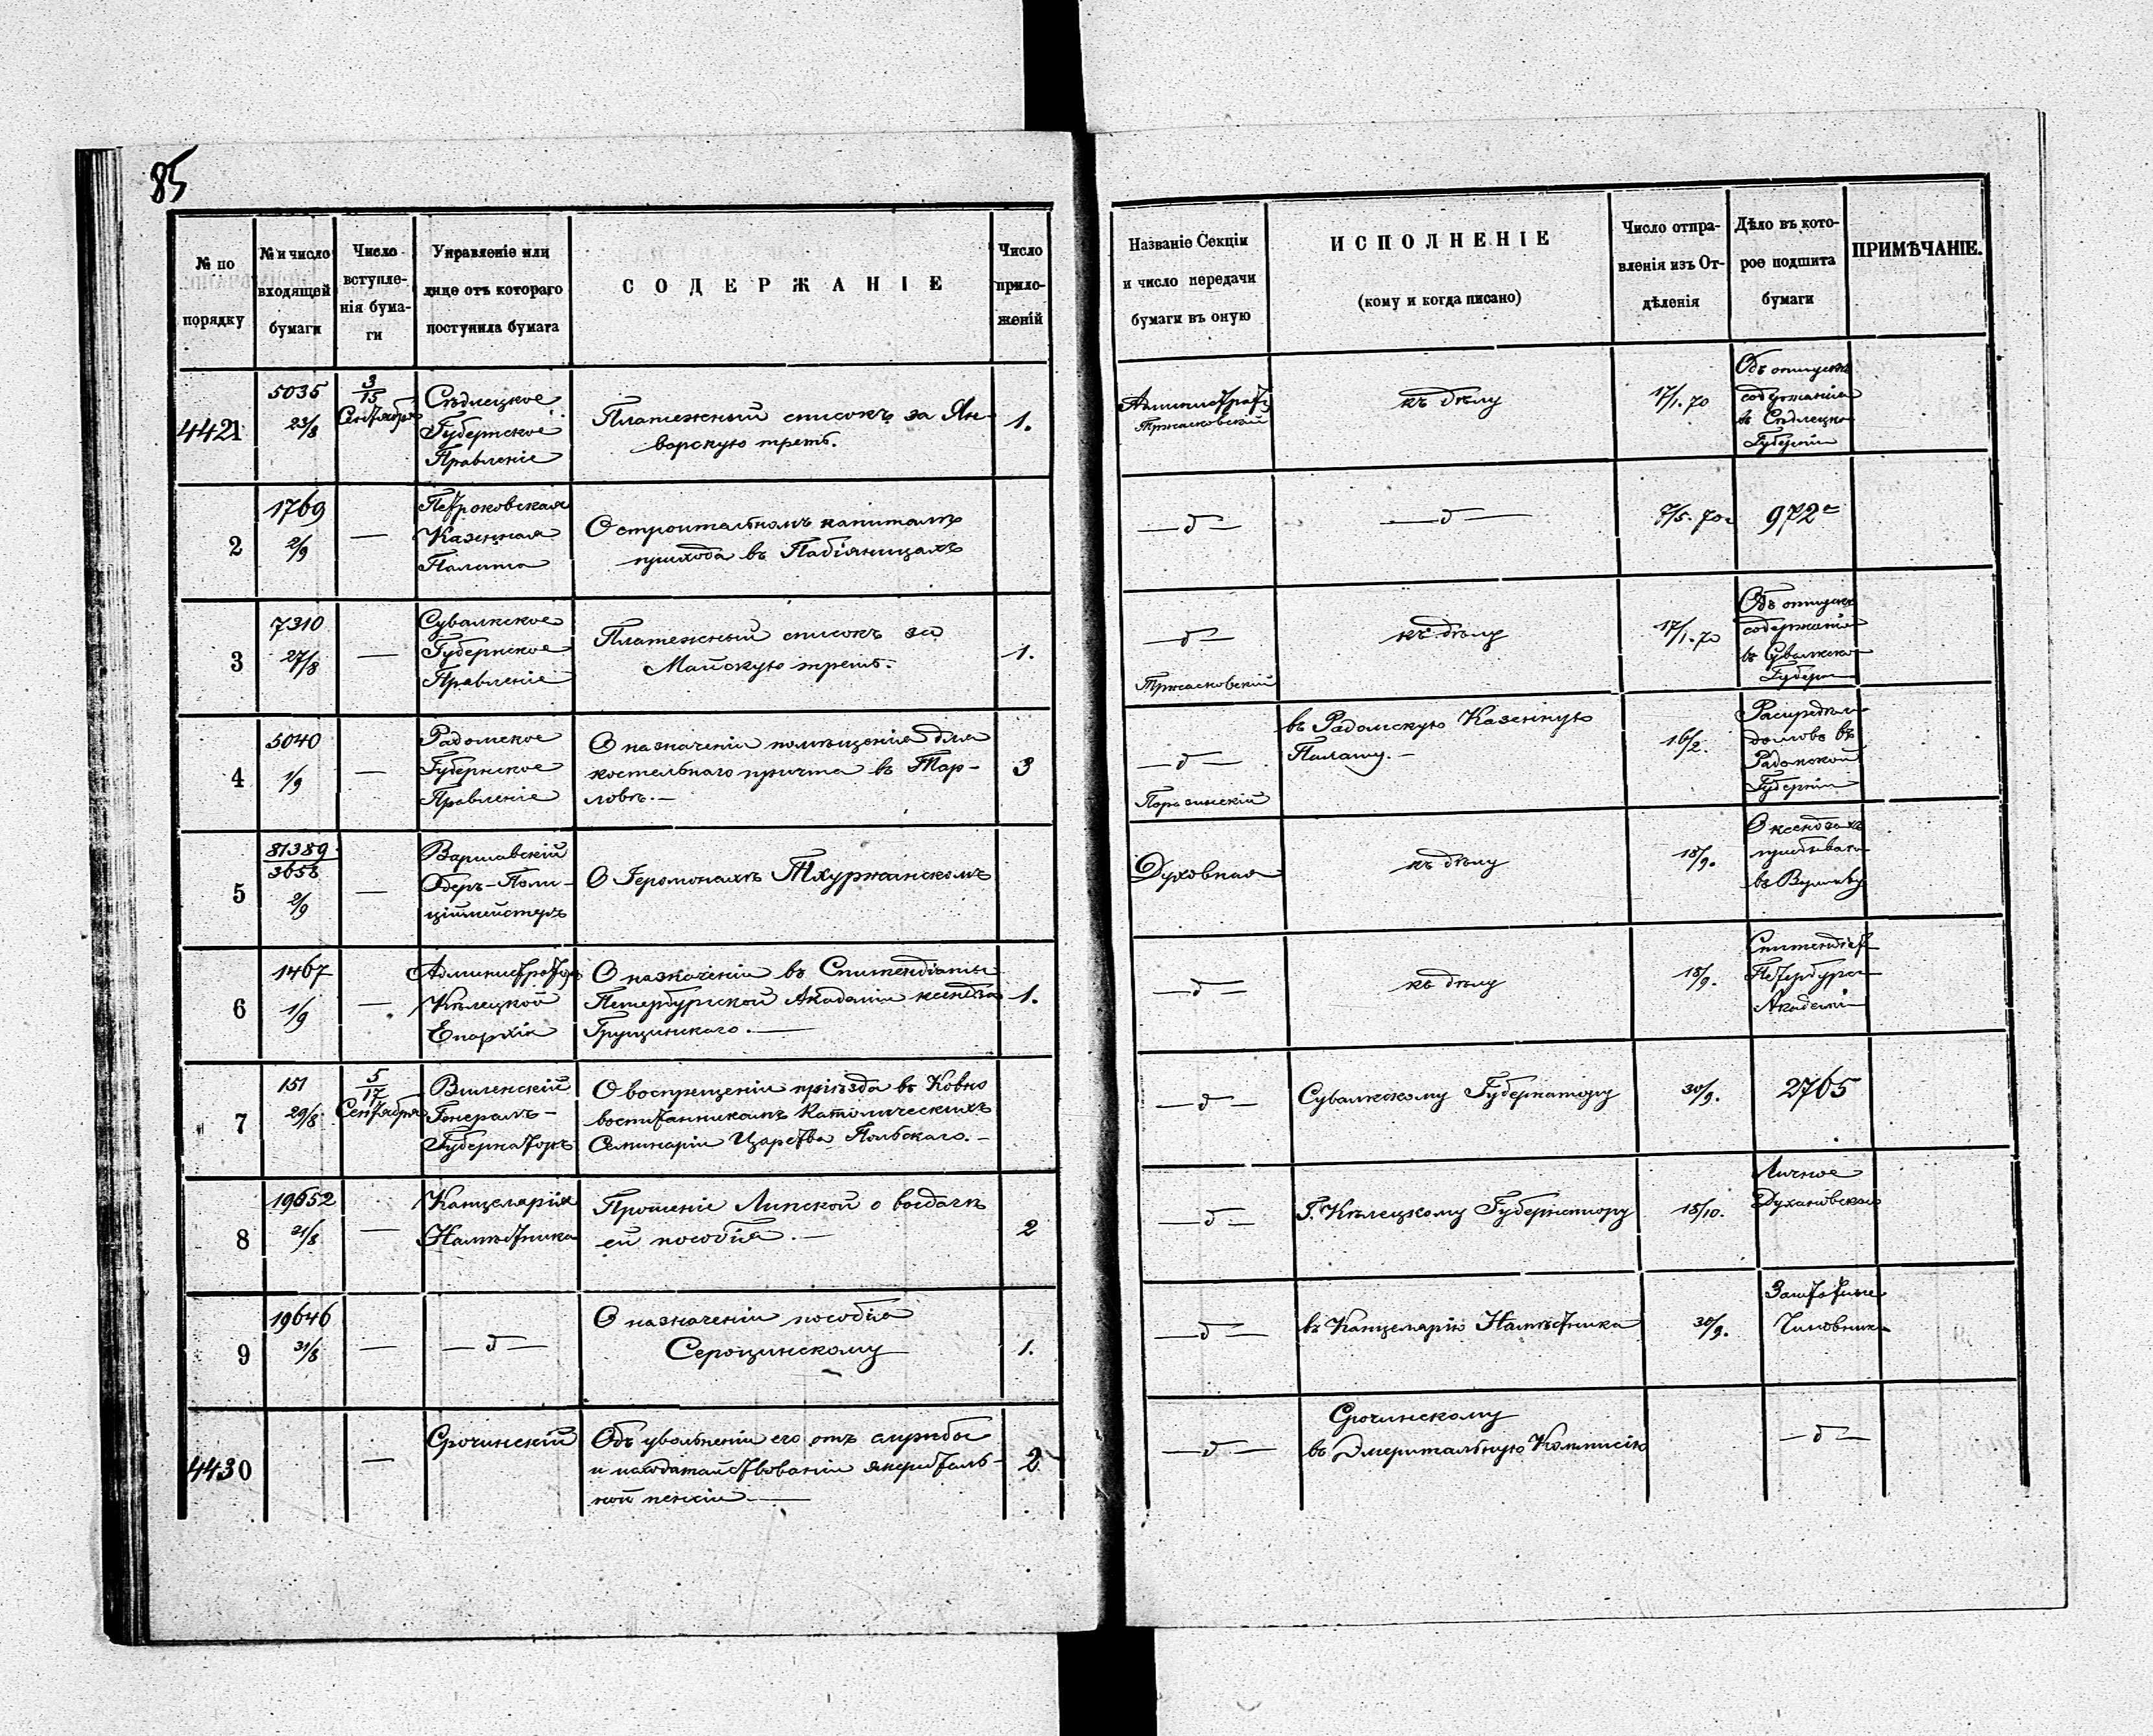 85
№ по порядку
№ и число входящей бумаги
Число вступленія бумаги
Управленіе или лице отъ котораго поступила бумага
СОДЕРЖАНІЕ
Число приложеній
Названіе Секціи и число передачи бумаги въ оную
ИСПОЛНЕНІЕ
(кому и когда писано)
Число отправленія изъ Отдѣленія
Дѣло въ которое подшита бумаги
ПРИМѢЧАНІЕ.
4421
5035
23/8
3/15
Сентября
Сѣдлецкое
Губернское
Правленіе
Платежный списокъ за Ян-
варскую треть.
1.
Тржасковскій
къ дѣлу
17/1. 70
Объ отпускѣ
содержанія
въ Сѣдлецко
Губерніи
2
1769
2/9
—
Петроковская
Казенная
Палата
О строительномъ капиталѣ
прихода въ Пабіяницахъ
— д —
— д —
7/5. 70
972
3
7310
27/8
—
Сувалкское
Губернское
Правленіе
Платежный списокъ за
Майскую треть.
1.
— д —
Тржасковскій
къ дѣлу
17/1. 70
Объ отпускѣ
содержанія
въ Сувалкско
Губерн
4
5040
1/9
—
Радомское
Губернское
Правленіе
О назначеніи помѣщенія для
костельнаго причта въ Тар-
ловѣ. —
3
— д —
въ Радомскую Казенную
Палату. —
16/2.
домовъ въ
Радомской
Губерніи
5
81389
3658
2/9
—
Варшавскій
Оберъ-Поли-
ціймейстеръ
О Іеромонахѣ Тхуржанскомъ
Духовная
къ дѣлу
18/9.
О ксендзахъ
въ Варшаву
6
1467
1/9
—
Администраторъ
Кѣлецкой
Епархіи
О назначеніи въ Стипендіаты
Петербургской Академіи ксендза
Грущинскаго. —
1.
— д —
къ дѣлу
18/9.
Стипендіат
Петербург
Академіи
7
151
29/8
5/17
Сентября
Виленскій
Генералъ-
Губернаторъ
О воспрещеніи пріѣзда въ Ковно
воспитанникамъ Католическихъ
Семинаріи Царства Польскаго. —
— д —
Сувалкскому Губернатору
30/9.
2765
8
19652
31/8
—
Канцелярія
Намѣстника
Прошеніе Липской о выдачѣ
ей пособія. —
2
— д —
Г. Кѣлецкому Губернатору
15/10.
Личное
Духановскаго
9
19646
31/8
—
— д —
О назначеніи пособія
Серощинскому
1.
— д —
въ Канцелярію Намѣстника
30/9.
Заштатные
Чиновник
4430
—
Срочинскій
Объ увольненіи его отъ службы
и исходатайствованіи эмеритель-
ной пенсіи —
2
— д —
Срочинскому
въ Эмеритальную Коммисію
— д —